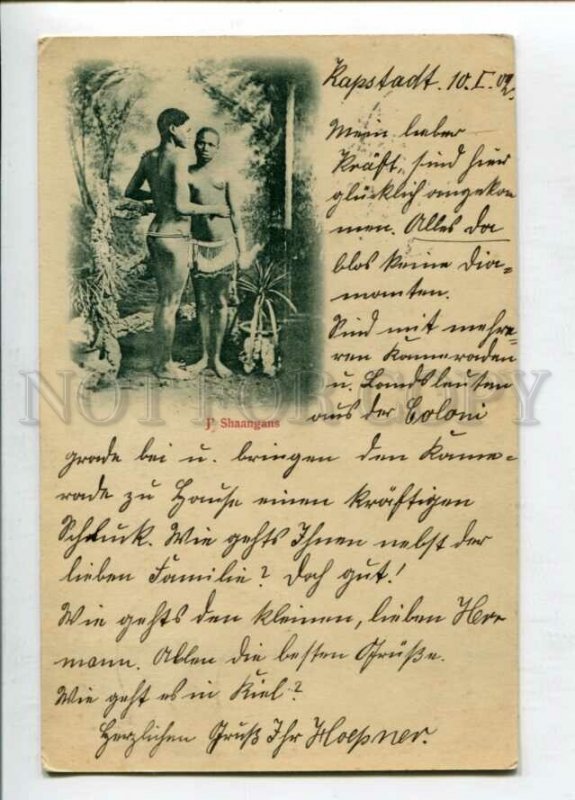 Kapstadt. 10. I. 02.
Mein lieber
Kräft, sind hier
glücklich angekom
men. Alles da
blos keine Dia=
manten.
Sind mit mehre=
ren Kameraden
u. Landsleuten
aus der Coloni
J' Shaangans
NOT FOR COPY
grade bei u. bringen den Kame=
rade zu Hause einen kräftigen
Schluck. Wie gehts Ihnen nebst der
lieben Familie? Doch gut!
Wie gehts den kleinen, lieben Her
mann. Allen die besten Grüße.
Wie geht es in Kiel?
Herzlichen Gruß Ihr Hoepner.